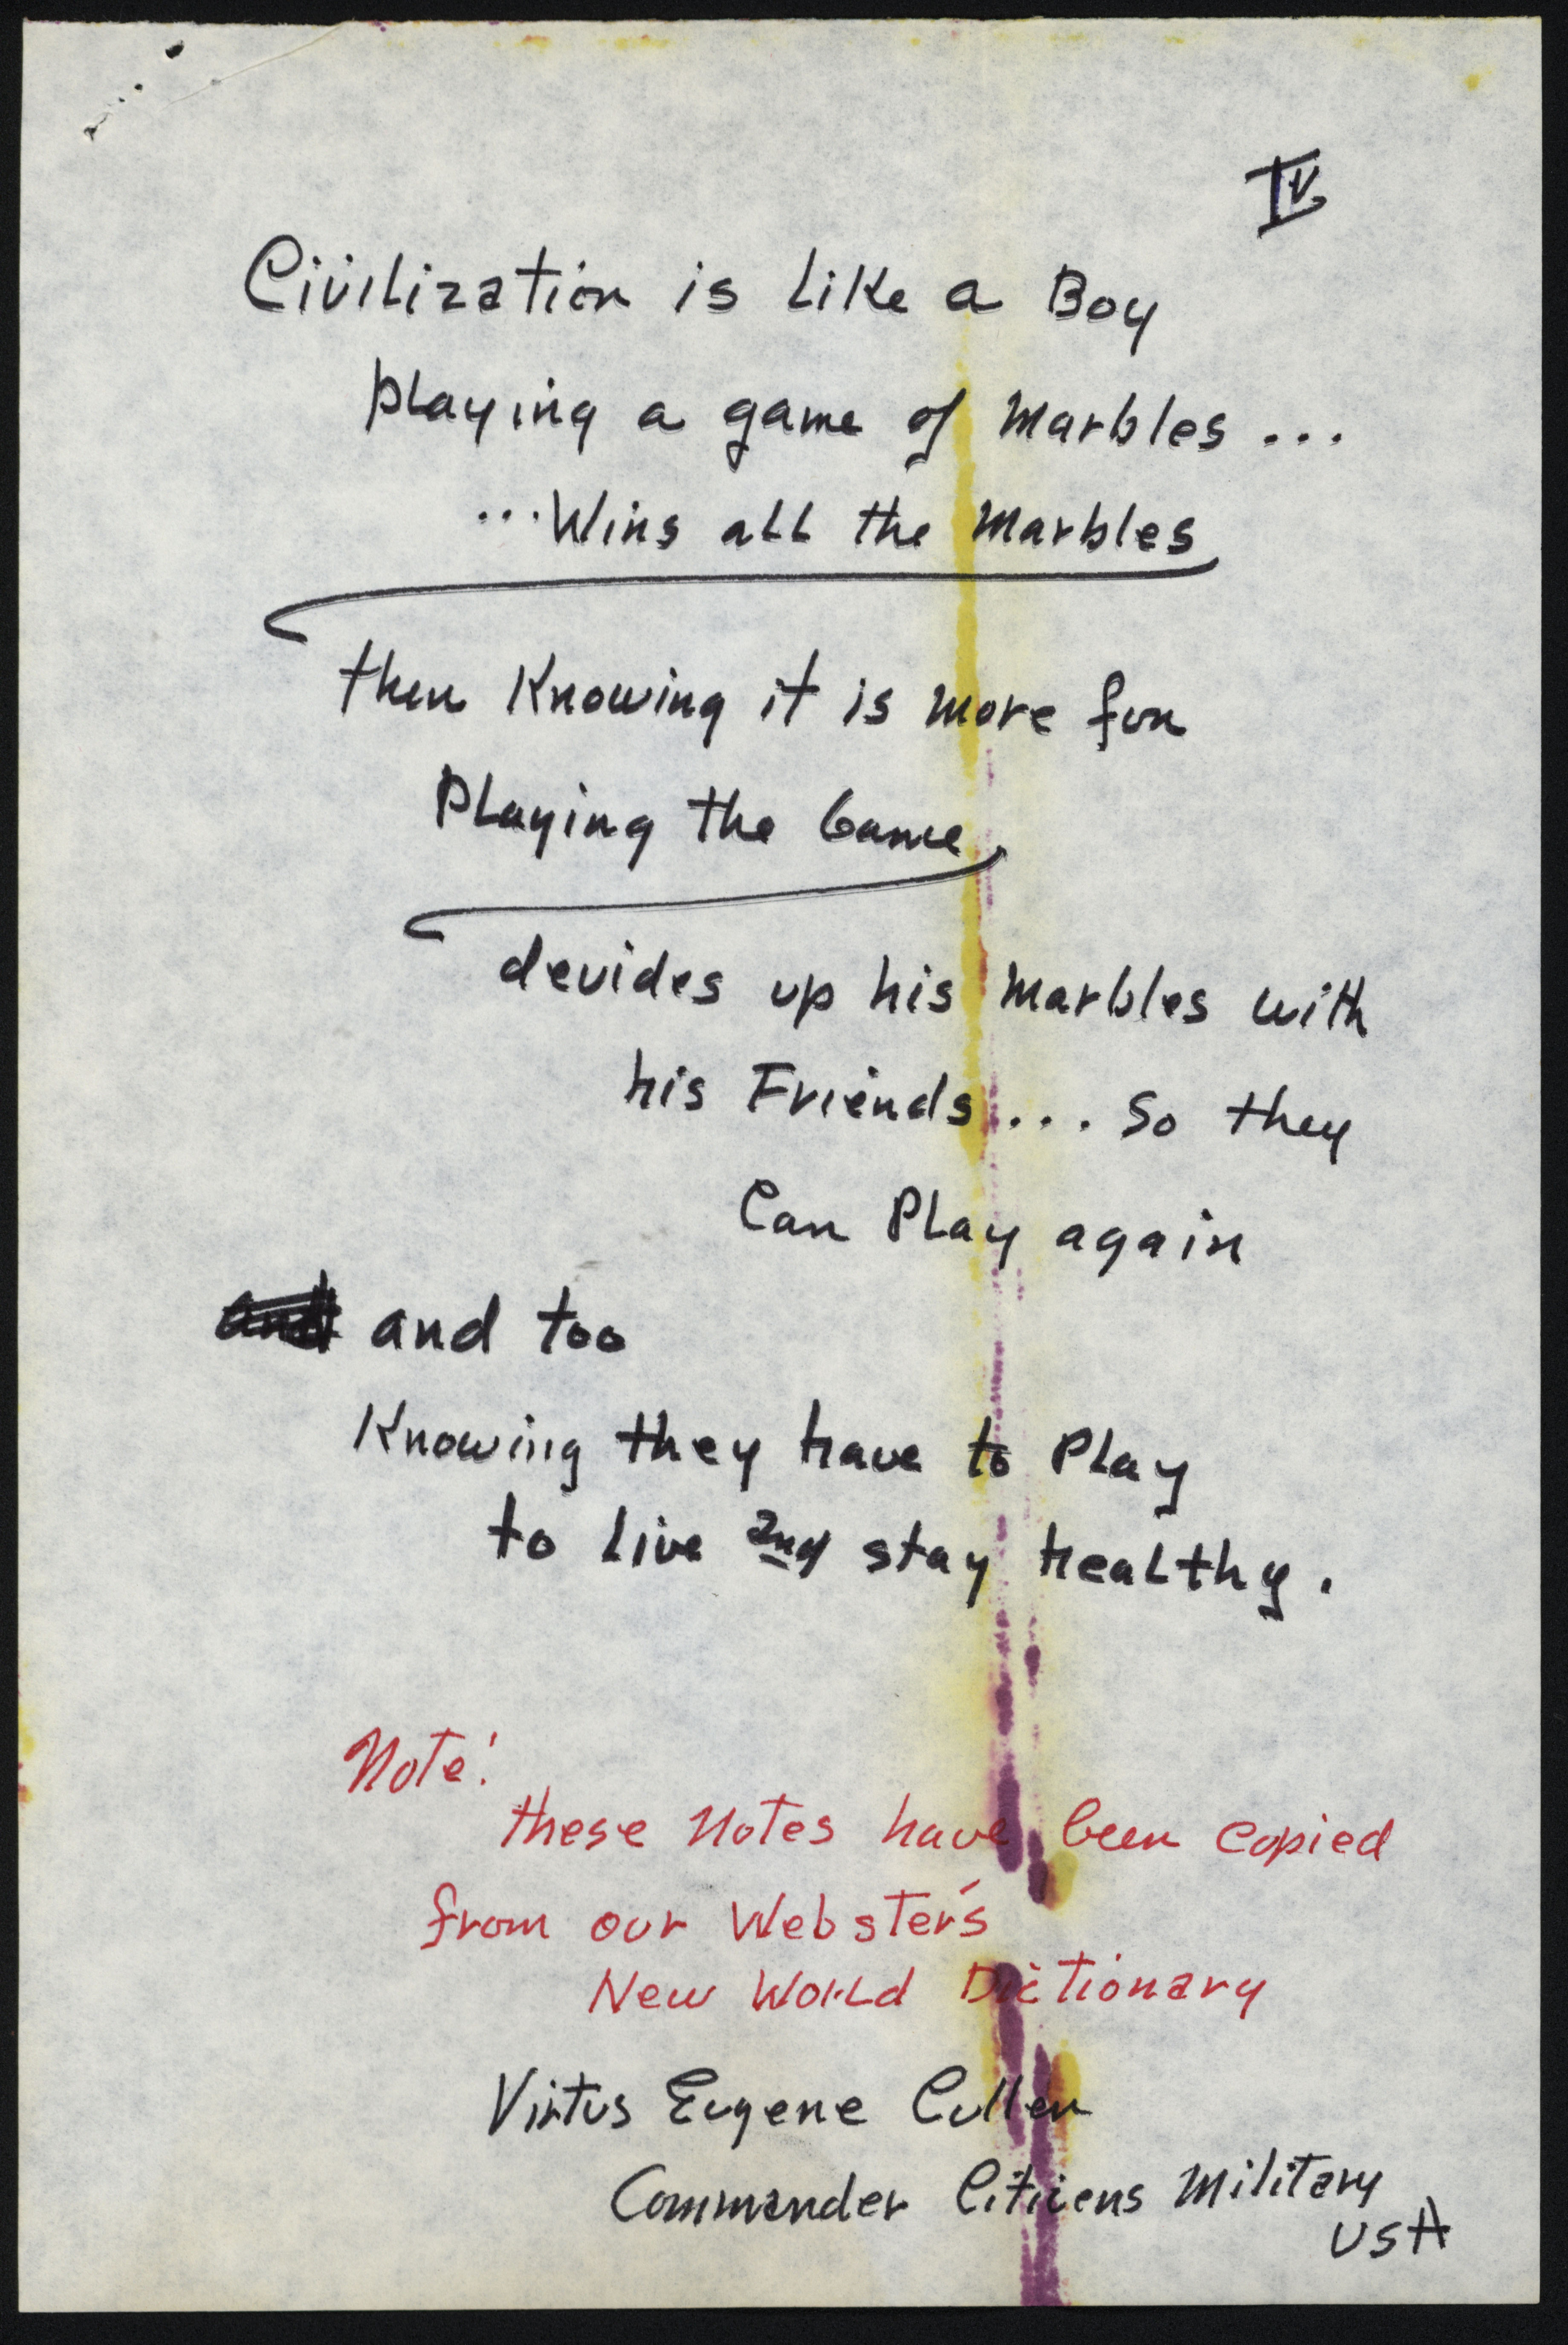 IV
Civilization is Like a Boy
playing a game of Marbles ...
...Wins all the Marbles
then Knowing it is more fun
Playing the Game,
devides up his Marbles with
his Friends... So they
Can Play again
and and too
Knowing they have to Play
to Live and stay healthy.
Note!
these Notes have been copied
from our Webster's
New World Dictionary
Virtus Eugene Cullen
Commander Citizens Military
USA